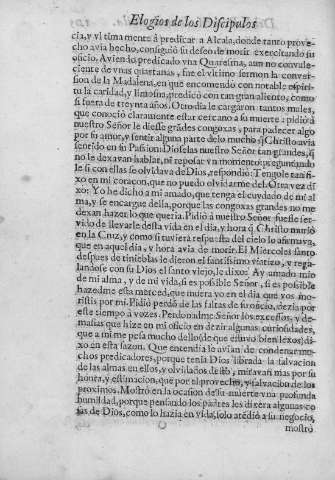 Elogios de los Discipulos
cia, y vltimamente à predicar a Alcala, donde tanto prove-
cho avia hecho, consiguiò su deseo de morir exercitando su
oficio. Aviendo predicado vna Quaresma, aun no convale-
ciente de vnas quartanas, fue el vltimo sermon la conver-
sion de la Madalena, en que encomendo con notable espiri-
tu la caridad, y limosna, predicò con tan gran aliento, como
si fuera de treynta años. Otro dia le cargaron tantos males,
que conociò claramente estar cercano a su muerte: pidiò à
nuestro Señor le diesse grādes congoxas, para padecer algo
por su amor, y sentir alguna parte de lo mucho q̃ Christo avia
sentido en su Passion. Dioselas nuestro Señor tan grandes, q̃
no le dexavan hablar, ni reposar vn momento: preguntando
le si con ellas se olvidava de Dios, respondiò: Tengole tan fi-
xo en mi coraçon, que no puedo olvidarme del. Otra vez di
xo: Yo he dicho a mi amado, que tenga el cuydado de mi al
ma, y se encargue della, porque las congoxas grandes no me
dexan hazer lo que queria. Pidiò à nuestro Señor fuesse ser-
vido de llevarle desta vida en el dia, y hora q̃ Christo muriò
en la Cruz, y como si tuviera respuesta del cielo lo afirmava,
que en aquel dia, y hora avia de morir. El Miercoles santo
despues de tinieblas le dieron el santissimo viatico, y rega-
landose con su Dios el santo viejo, le dixo: Ay amado mio
de mi alma, y de mi vida, si es possible Señor, si es possible
hazedme esta merced, que muera yo en el dia que vos mo-
ristis por mi. Pidiò perdō de las faltas de su oficio, dezia por
este tiempo à vozes. Perdonadme Señor los excessos, y de-
masias que hize en mi oficio en dezir algunas curiosidades,
que a mi me pesa mucho dello (de que estuvo bien lexos) di-
xo en esta sazon. Que entendia se avian de condenar mu-
chos predicadores, porque tenia Dios librada la salvacion
de las almas en ellos, y olvidados desto, miravan mas por su
honra, y estimacion, que por el provecho, y salvacion de los
proximos. Mostrò en la ocasion de su muerte vna profunda
humildad, porque pensando los padres les dixera algunas co
sas de Dios, como lo hazia en vida, solo atēdiò a su negocio,
mostrò